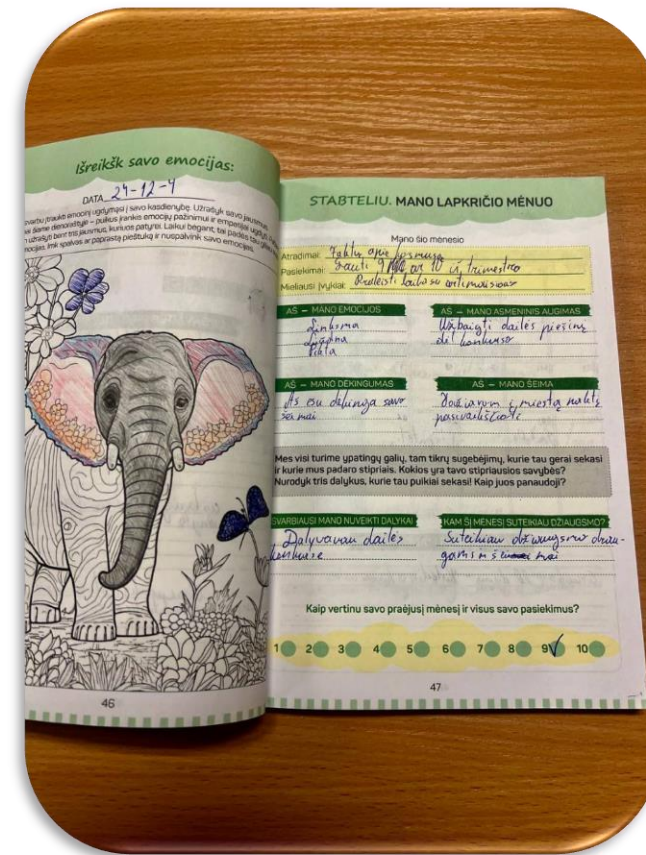 Išreikšk savo emocijas:
DATA 24-12-4
svarbu įtraukti emocinį ugdymąsi į savo kasdienybę. Užrašyk savo jausmus
šiame dienoraštyje – puikus įrankis emocijų pažinimui ir empatijai ugdyti.
užrašyti bent tris jausmus, kuriuos patyrei. Laikui bėgant, tai padės tau geriau
emocijas. Imk spalvas ar paprastą pieštuką ir nuspalvink savo emocijas.
46
STABTELIU. MANO LAPKRIČIO MĖNUO
Mano šio mėnesio
Atradimai: Faktų apie kosmusą
Pasiekimai: Gauti 9 ar 10 iš trimestro
Mieliausi įvykiai: Praleisti laiką su artimaisiais
AŠ – MANO EMOCIJOS
Linksma
Liūdna
Pikta
AŠ – MANO ASMENINIS AUGIMAS
Užbaigti dailės piešinį
dėl konkurso
AŠ – MANO DĖKINGUMAS
Aš esu dėkinga savo
šeimai
AŠ – MANO ŠEIMA
Važiavom į miestą naktį
pasivaikščioti
Mes visi turime ypatingų galių, tam tikrų sugebėjimų, kurie tau gerai sekasi
ir kurie mus padaro stipriais. Kokios yra tavo stipriausios savybės?
Nurodyk tris dalykus, kurie tau puikiai sekasi! Kaip juos panaudoji?
SVARBIAUSI MANO NUVEIKTI DALYKAI
Dalyvavau dailės
konkurse
KAM ŠĮ MĖNESĮ SUTEIKIAU DŽIAUGSMO?
Suteikiau džiaugsmo drau-
gams ir šeimai
Kaip vertinu savo praėjusį mėnesį ir visus savo pasiekimus?
1 2 3 4 5 6 7 8 9 10
47